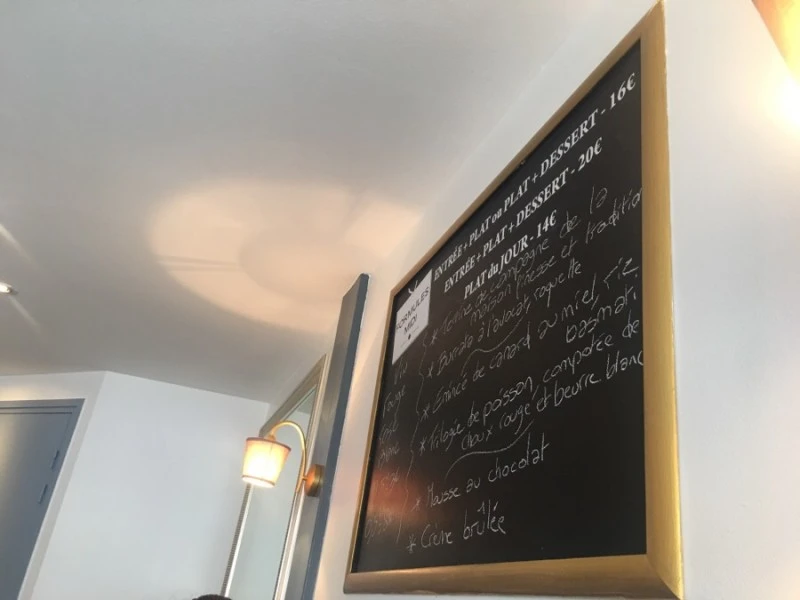 ENTRÉE + PLAT ou PLAT + DESSERT - 16€
ENTRÉE + PLAT + DESSERT - 20€
PLAT du JOUR - 14€
FORMULES
MIDI
* Terrine de campagne de la
maison et tradition
* Burrata à l'avocat, roquette
* Emincé de canard au miel, riz
basmati
* Trilogie de poisson, compotée de
choux rouge et beurre blanc
* Mousse au chocolat
* Crème brûlée
rouge